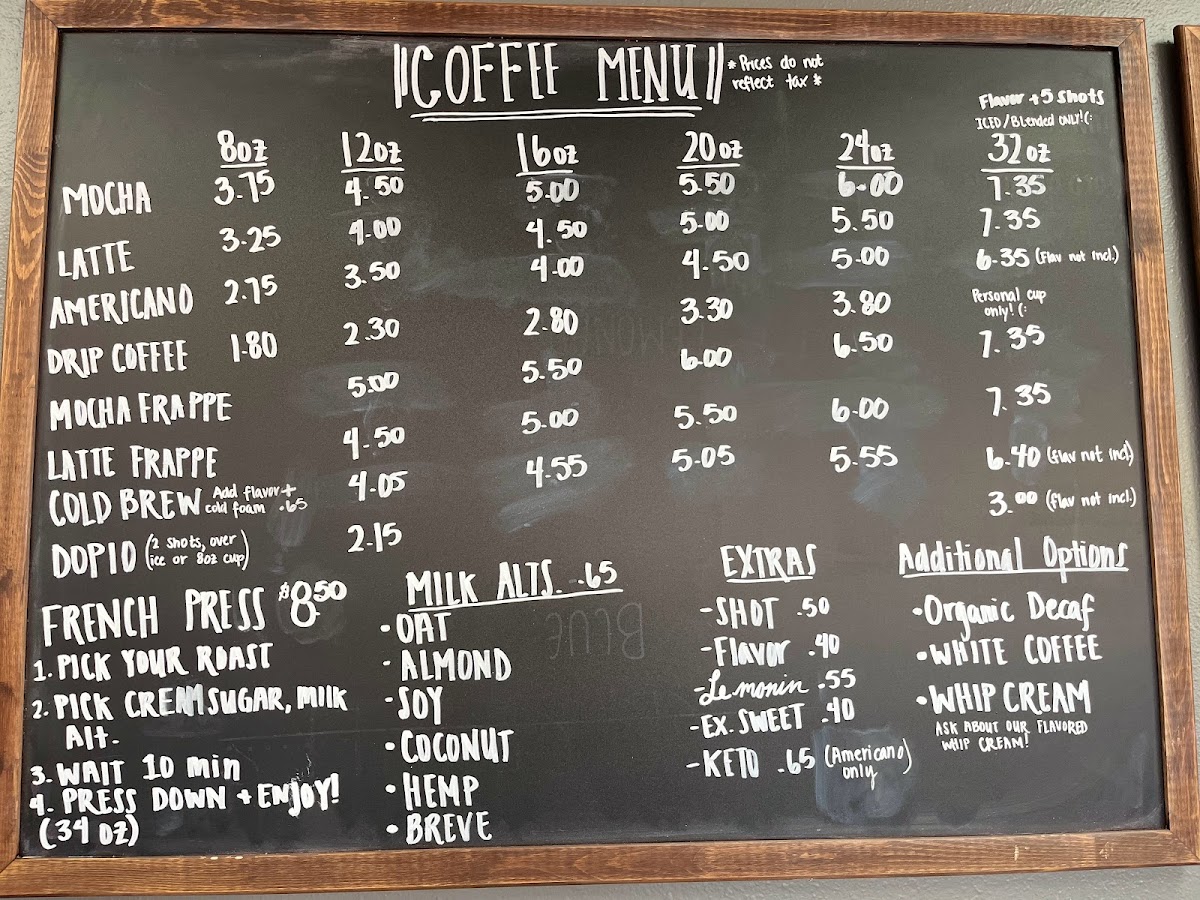 COFFEE MENU
*Prices do not
reflect tax *
Flavor + 5 shots
ICED/Blended ONLY!(:
8oz 12oz 16oz 20oz 24oz 32oz
MOCHA 3.75 4.50 5.00 5.50 6.00 7.35
LATTE 3.25 4.00 4.50 5.00 5.50 7.35
AMERICANO 2.75 3.50 4.00 4.50 5.00 6.35 (Flav not Incl.)
DRIP COFFEE 1.80 2.30 2.80 3.30 3.80 Personal cup
only! (:
MOCHA FRAPPE 5.00 5.50 6.00 6.50 7.35
LATTE FRAPPE 4.50 5.00 5.50 6.00 7.35
COLD BREW Add flavor + 4.05 4.55 5.05 5.55 6.40 (flav not incl)
cold foam .65
DOPIO (2 shots, over 2.15 3.00 (flav not incl.)
ice or 8oz cup)
FRENCH PRESS $8.50
1. PICK YOUR ROAST
2. PICK CREAM SUGAR, MILK
Alt.
3. WAIT 10 min
4. PRESS DOWN + ENJOY!
(34 oz)
MILK ALTS. .65
• OAT
• ALMOND
• SOY
• COCONUT
• HEMP
• BREVE
BLUE
EXTRAS
- SHOT .50
- Flavor .40
- Lemonin .55
- EX. SWEET .40
- KETO .65 (Americano)
only
Additional Options
• Organic Decaf
• WHITE COFFEE
• WHIP CREAM
ASK ABOUT OUR FLAVORED
WHIP CREAM!